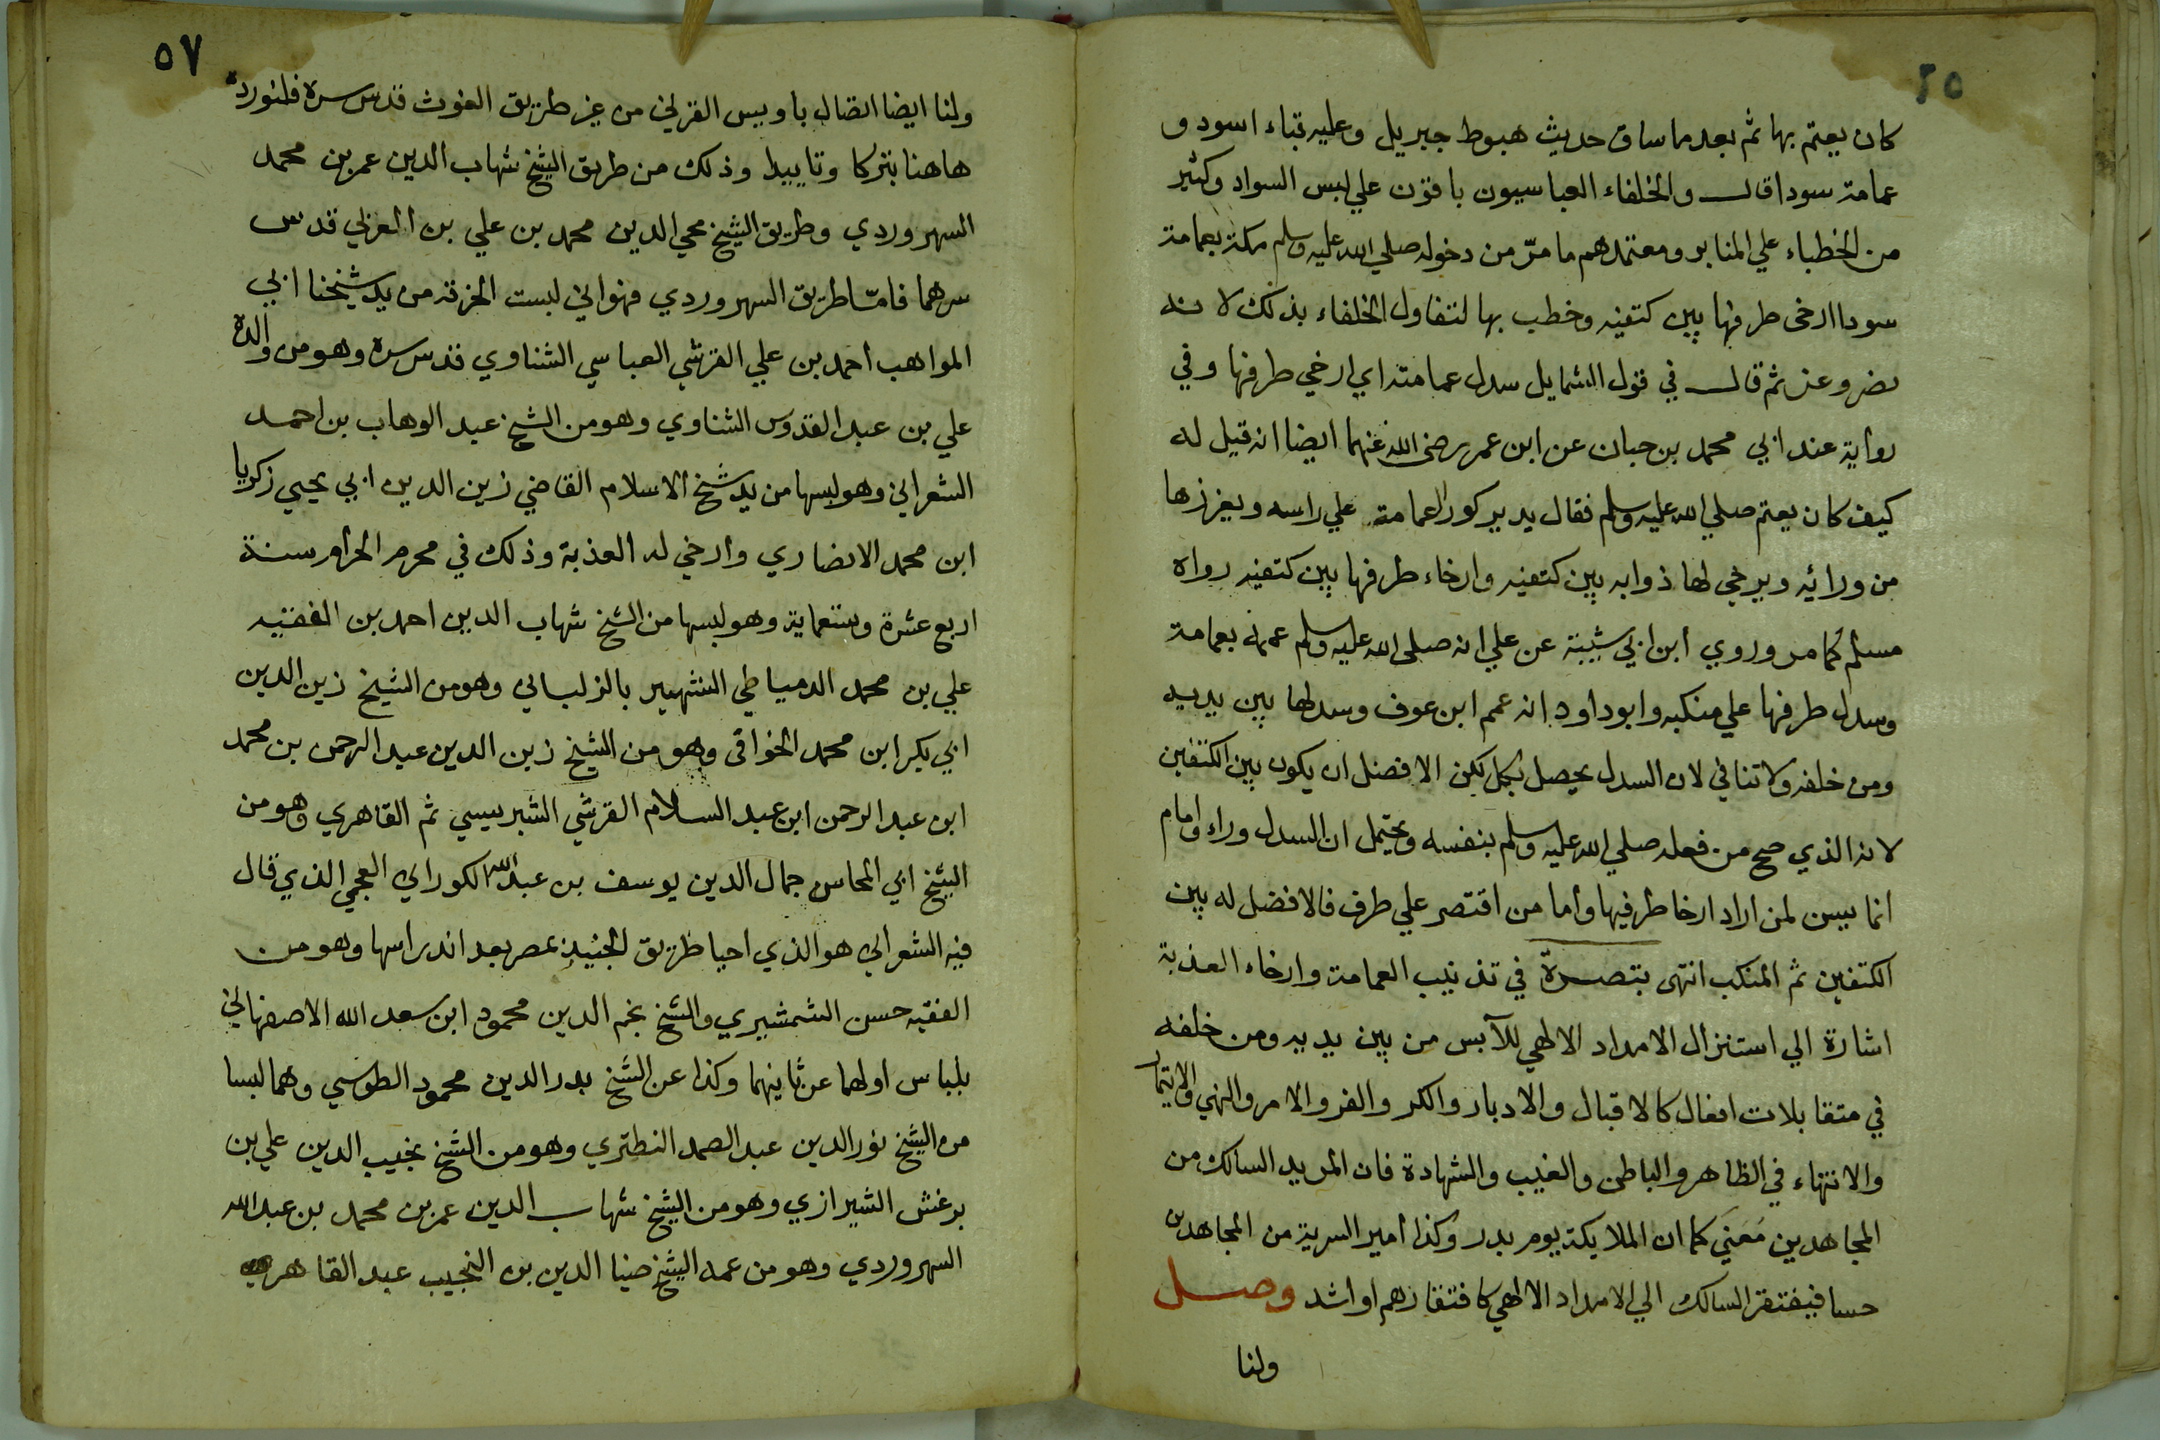 ٢٥
كان يعتم بها ثم بعد ما ساق حديث هبوط جبريل وعليه قباء اسود و
عمامة سودا قال والخلفاء العباسيون باقون علي لبس السواد وكثير
من الخطباء علي المنابر ومعتمدهم ما مرّ من دخوله صلي الله عليه وسلم مكة بعمامة
سودا ارخى طرفها بين كتفيه وخطب بها لتفاول الخلفاء بذلك لانه
نصر وعز ثم قال في قول الشمايل سدل عمامته اي ارخي طرفها وفي
رواية عند ابي محمد بن حبان عن ابن عمر رضي الله عنهما ايضا انه قيل له
كيف كان يعتم صلي الله عليه وسلم فقال يدير كور العمامة علي راسه ويغرزها
من ورائه ويرخي لها ذوابه بين كتفيه وارخاء طرفها بين كتفيه رواه
مسلم كما مر وروي ابن ابي شيبة عن علي انه صلى الله عليه وسلم عممه بعمامة
وسدل طرفها علي منكبه وابو داود انه عمم ابن عوف وسدلها بين يديه
ومن خلفه ولا تنافي لان السدل يحصل بكل لكن الافضل ان يكون بين الكتفين
لانه الذي صح من فعله صلي الله عليه وسلم بنفسه ويحتمل ان السدل وراء وامام
انما يسن لمن اراد ارخا طرفيها واما من اقتصر علي طرف فالافضل له بين
الكتفين ثم المنكب انتهى بتصرة في تذنيب العمامة وارخاء العذبة
اشارة الي استنزال الامداد الالهي للآبس من بين يديه ومن خلفه
في متقابلات افعال كالاقبال والادبار والكر والفر والامر والنهي والايتمار
والانتهاء في الظاهر والباطن والغيب والشهادة فان المريد السالك من
المجاهدين مَعنَي كما ان الملايكة يوم بدر وكذا امير السرية من المجاهدين
حسا فيفتقر السالك الي الامداد الالهي كافتقارهم او اشد وصل
ولنا
٥٧
ولنا ايضا اتصال باويس القرني من غير طريق الغوث قدس سره فلنورده
هاهنا تبركا وتاييدا وذلك من طريق الشيخ شهاب الدين عمر بن محمد
السهروردي وطريق الشيخ محي الدين محمد بن علي بن العربي قدس
سرهما فامّا طريق السهروردي فهو اني لبست الخرقة من يد شيخنا ابي
المواهب احمد بن علي القرشي العباسي الشناوي قدس سره وهو من والده
علي بن عبد القدوس الشناوي وهو من الشيخ عبد الوهاب بن احمد
الشعراني وهو لبسها من يد شيخ الاسلام القاضي زين الدين ابي يحيي زكريا
ابن محمد الانصاري وارخي له العذبة وذلك في محرم الحرام سنة
اربع عشرة وتسعماية وهو لبسها من الشيخ شهاب الدين احمد بن الفقيه
علي بن محمد الدمياطي الشهير بالزلباني وهو من الشيخ زين الدين
ابي بكر ابن محمد الخوافي وهو من الشيخ زين الدين عبد الرحمن بن محمد
ابن عبد الرحمن ابن عبد السلام القرشي الشبريسي ثم القاهري وهو من
الشيخ ابي المحاسن جمال الدين يوسف بن عبد الله الكوراني العجمي الذي قال
فيه الشعراني هو الذي احيا طريق الجنيد بمصر بعد اندراسها وهو من
الفقيه حسن الشمشيري والشيخ نجم الدين محمود ابن سعد الله الاصفهاني
بلباس اولهما عن ثانيهما وكذا عن الشيخ بدر الدين محمود الطوسي وهما لبسا
من الشيخ نور الدين عبد الصمد النطتري وهو من الشيخ نجيب الدين علي بن
برغش الشيرازي وهو من الشيخ شهاب الدين عمر بن محمد بن عبد الله
السهروردي وهو من عمه الشيخ ضيا الدين بن النجيب عبد القاهر